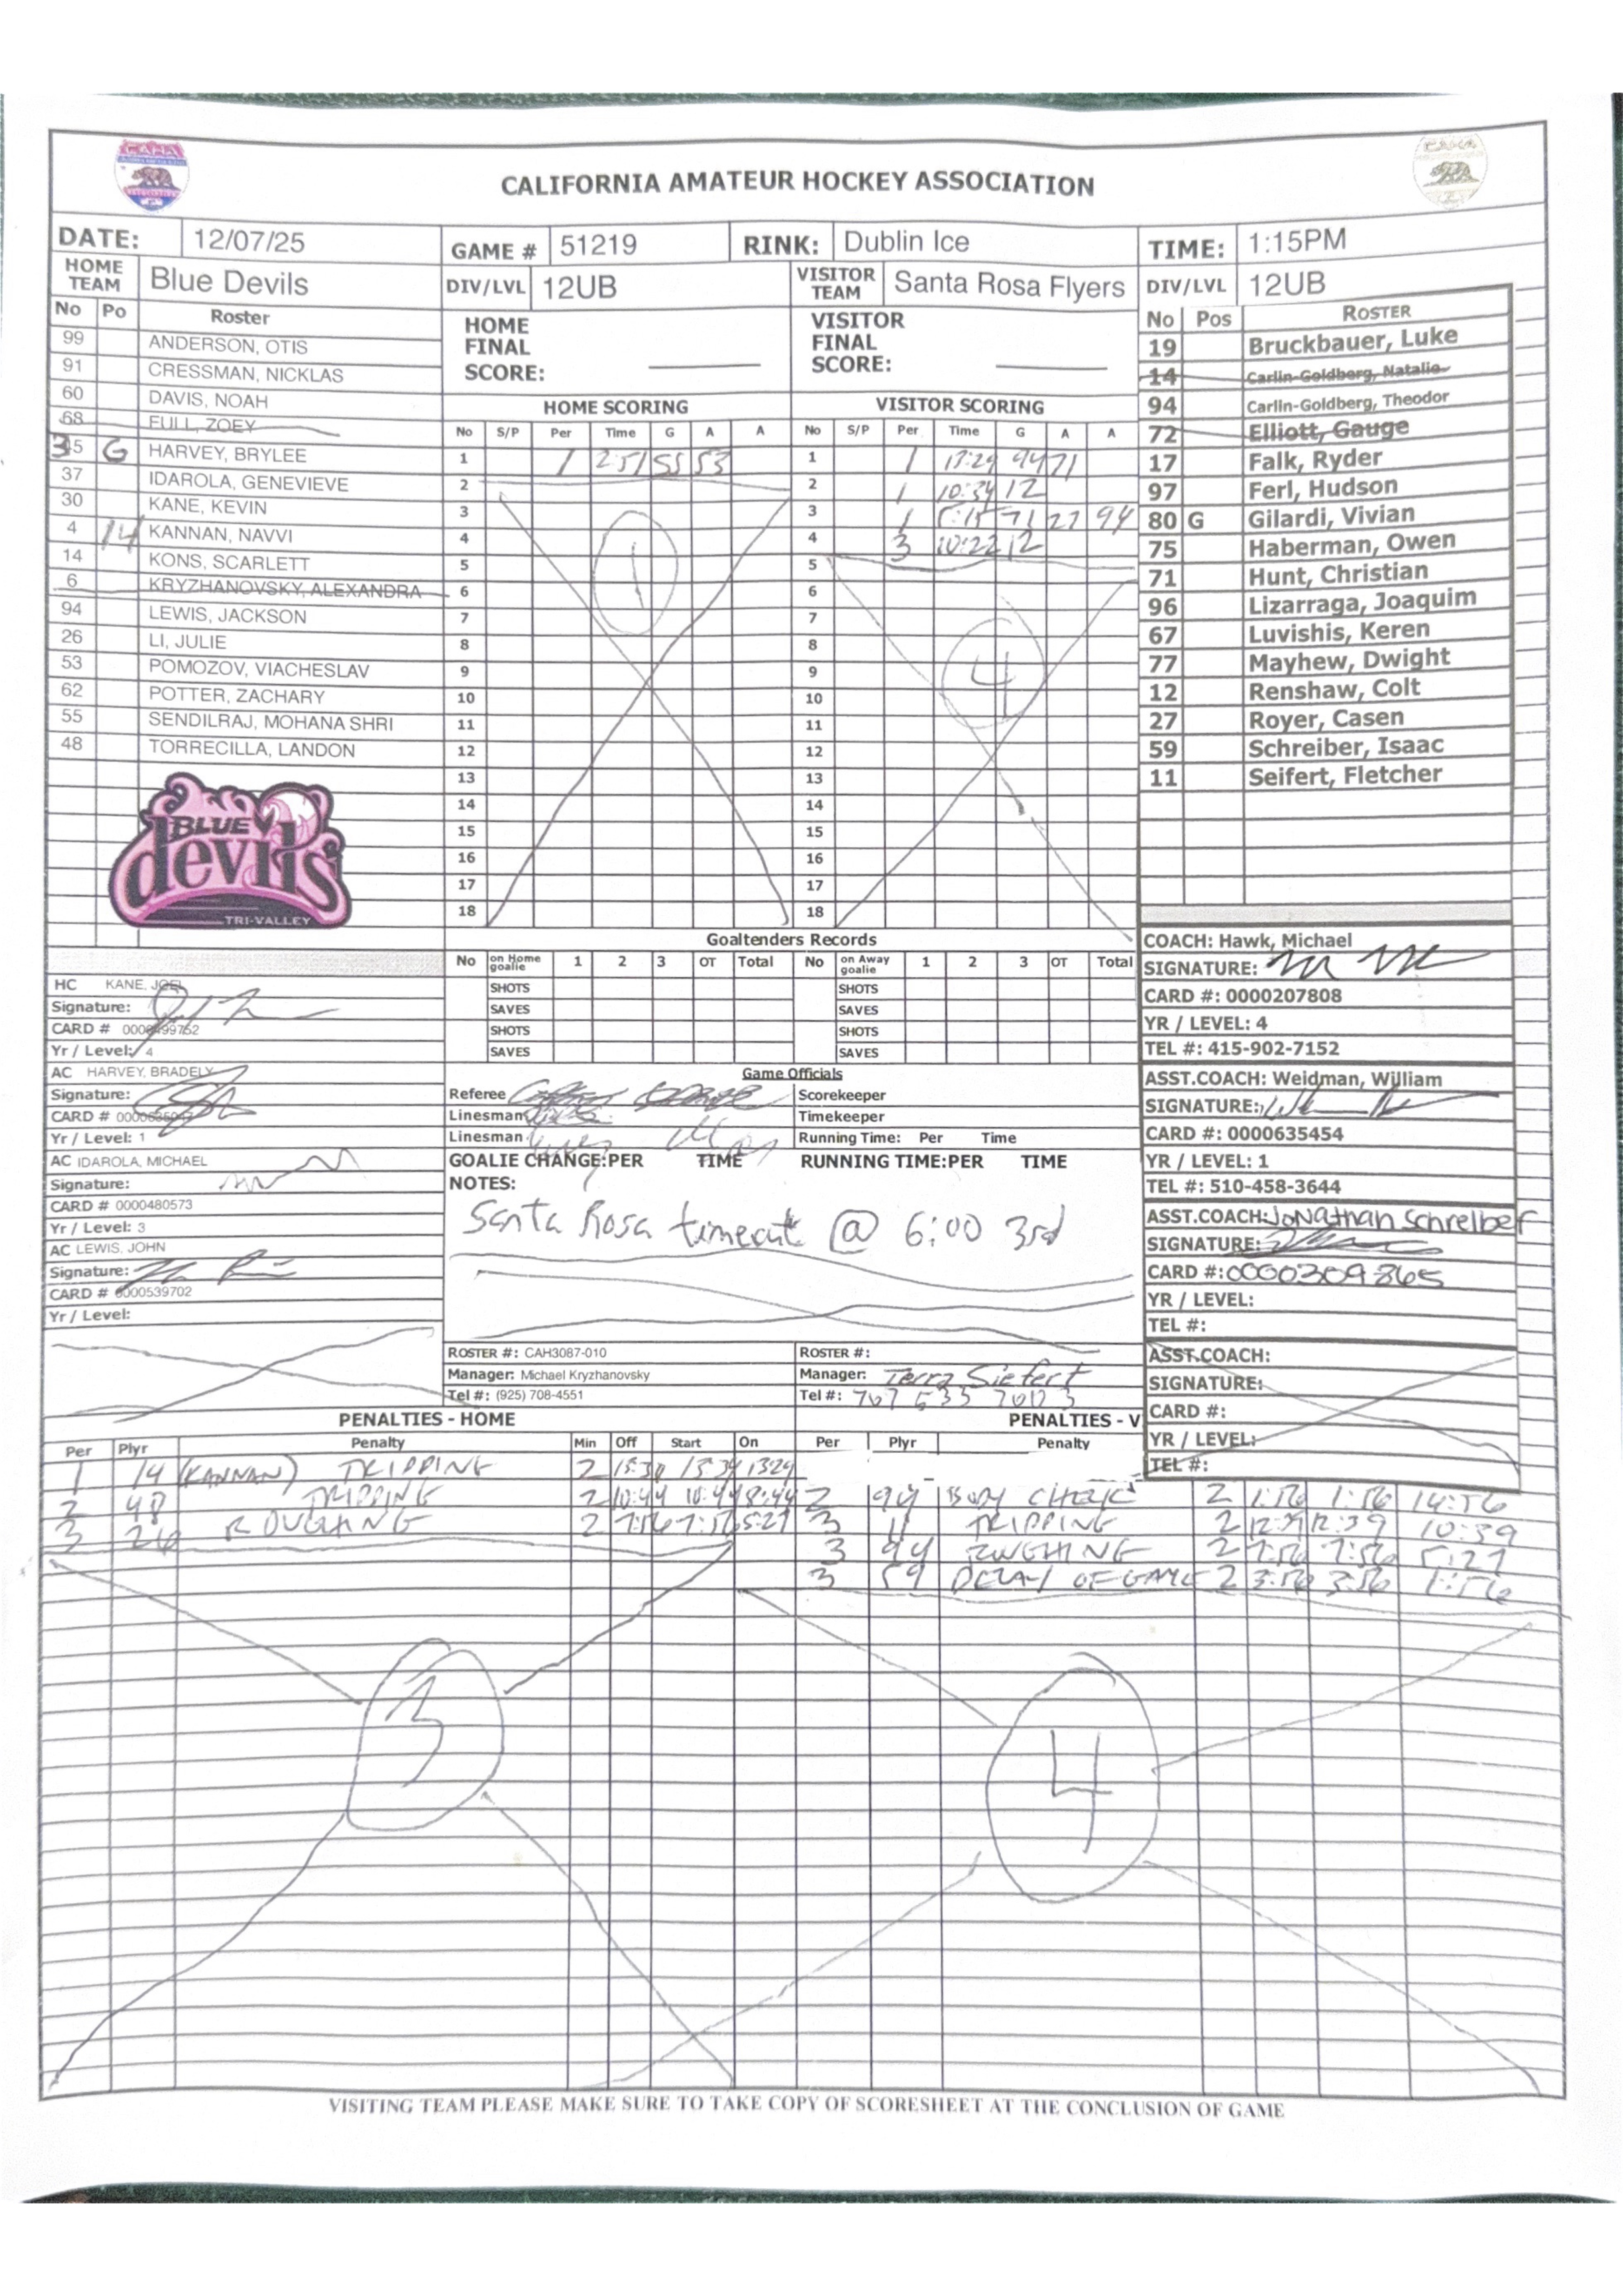 CALIFORNIA AMATEUR HOCKEY ASSOCIATION
DATE: 12/07/25 GAME # 51219 RINK: Dublin Ice TIME: 1:15PM
HOME TEAM Blue Devils DIV/LVL 12UB VISITOR TEAM Santa Rosa Flyers DIV/LVL 12UB
No Po Roster
99 ANDERSON, OTIS
91 CRESSMAN, NICKLAS
60 DAVIS, NOAH
68 FULL, ZOEY
35 G HARVEY, BRYLEE
37 IDAROLA, GENEVIEVE
30 KANE, KEVIN
4 14 KANNAN, NAVVI
14 KONS, SCARLETT
6 KRYZHANOVSKY, ALEXANDRA
94 LEWIS, JACKSON
26 LI, JULIE
53 POMOZOV, VIACHESLAV
62 POTTER, ZACHARY
55 SENDILRAJ, MOHANA SHRI
48 TORRECILLA, LANDON
BLUE
devils
TRI-VALLEY
HOME FINAL SCORE:
VISITOR FINAL SCORE:
HOME SCORING
No S/P Per Time G A A
1 1 2:51 55 53
2
3
4
5
6
7
8
9
10
11
12
13
14
15
16
17
18
1
VISITOR SCORING
No S/P Per Time G A A
1 1 13:29 94 71
2 1 10:34 12
3 1 71 27 94
4 3 10:22 12
5
6
7
8
9
10
11
12
13
14
15
16
17
18
4
No Pos ROSTER
19 Bruckbauer, Luke
14 Carlin-Goldberg, Natalie
94 Carlin-Goldberg, Theodor
72 Elliott, Gauge
17 Falk, Ryder
97 Ferl, Hudson
80 G Gilardi, Vivian
75 Haberman, Owen
71 Hunt, Christian
96 Lizarraga, Joaquim
67 Luvishis, Keren
77 Mayhew, Dwight
12 Renshaw, Colt
27 Royer, Casen
59 Schreiber, Isaac
11 Seifert, Fletcher
Goaltenders Records
No on Home goalie 1 2 3 OT Total No on Away goalie 1 2 3 OT Total
SHOTS SHOTS
SAVES SAVES
SHOTS SHOTS
SAVES SAVES
Game Officials
Referee Scorekeeper
Linesman Timekeeper
Linesman Running Time: Per Time
GOALIE CHANGE:PER TIME RUNNING TIME:PER TIME
NOTES:
Santa Rosa timeout @ 6:00 3rd
ROSTER #: CAH3087-010 ROSTER #:
Manager: Michael Kryzhanovsky Manager: Terra Siefert
Tel #: (925) 708-4551 Tel #: 707
HC KANE, JOEL
Signature:
CARD # 0000499752
Yr / Level: 4
AC HARVEY, BRADELY
Signature:
CARD #
Yr / Level: 1
AC IDAROLA, MICHAEL
Signature:
CARD # 0000480573
Yr / Level: 3
AC LEWIS, JOHN
Signature:
CARD # 0000539702
Yr / Level:
COACH: Hawk, Michael
SIGNATURE:
CARD #: 0000207808
YR / LEVEL: 4
TEL #: 415-902-7152
ASST.COACH: Weidman, William
SIGNATURE:
CARD #: 0000635454
YR / LEVEL: 1
TEL #: 510-458-3644
ASST.COACH: Jonathan Schreiber
SIGNATURE:
CARD #: 0000309865
YR / LEVEL:
TEL #:
ASST.COACH:
SIGNATURE:
CARD #:
YR / LEVEL:
TEL #:
PENALTIES - HOME
Per Plyr Penalty Min Off Start On
1 14 (KANNAN) TRIPPING 2 13:29
2 48 TRIPPING 2 10:44 10:44 8:44
3 26 ROUGHING 2 7:56 7:56 5:27
3
PENALTIES - V
Per Plyr Penalty
2 94 BODY CHECK 2 1:56 1:56 14:56
3 11 TRIPPING 2 12:39 12:39 10:39
3 94 ROUGHING 2 7:56 7:56 5:27
3 59 DELAY OF GAME 2 3:56 3:56 1:56
4
VISITING TEAM PLEASE MAKE SURE TO TAKE COPY OF SCORESHEET AT THE CONCLUSION OF GAME